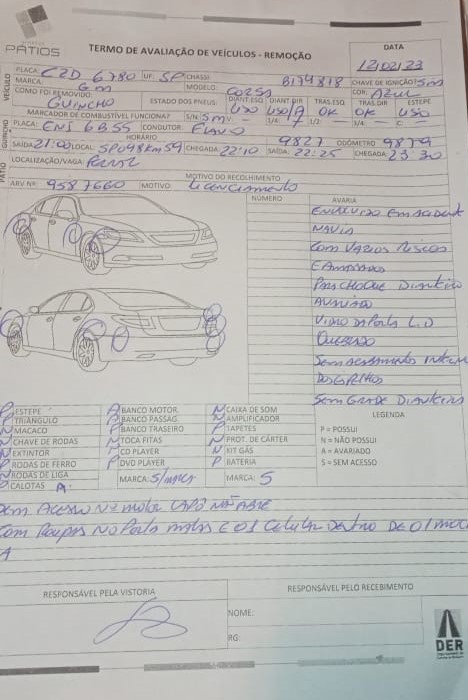 PÁTIOS
TERMO DE AVALIAÇÃO DE VEÍCULOS - REMOÇÃO
DATA
12/02/23
VEÍCULO
PLACA: CZD 6780 UF: SP CHASSI: B174818 CHAVE DE IGNIÇÃO: Sm
MARCA: Gm MODELO: CORSA COR: AZUL
COMO FOI REMOVIDO: GUINCHO ESTADO DOS PNEUS: DIANT.ESQ DIANT.DIR TRAS.ESQ. TRAS.DIR ESTEPE
USO USO/A OK OK USO
MARCADOR DE COMBUSTÍVEL FUNCIONA? S/N
GUINCHO
PLACA: ENS 6B55 CONDUTOR:
HORÁRIO 9827 ODÔMETRO 9879
SAÍDA: 21:00 LOCAL: SP098 Km 59 CHEGADA: 22:10 SAÍDA: 22:25 CHEGADA: 23:30
PÁTIO
LOCALIZAÇÃO/VAGA:
MOTIVO DO RECOLHIMENTO
ARV Nº: 9587660 MOTIVO: Licenciamento
NÚMERO AVARIA
ENVOLVIDO Em ACIDENT
COM VARIOS RISCOS
E AMASSADOS
PARACHOQUE DIANTEIRO
AVARIADO
VIDRO DA PORTA L.D
QUEBRADO
Sem ACABAMENTO INTER
Sem GRADE DIANTEIRA
P ESTEPE A BANCO MOTOR. N CAIXA DE SOM LEGENDA
TRIÂNGULO BANCO PASSAG. N AMPLIFICADOR
MACACO P BANCO TRASEIRO P TAPETES P = POSSUI
N CHAVE DE RODAS N TOCA FITAS N PROT. DE CÁRTER N = NÃO POSSUI
N EXTINTOR CD PLAYER N KIT GÁS A = AVARIADO
P RODAS DE FERRO DVD PLAYER P BATERIA S = SEM ACESSO
N RODAS DE LIGA MARCA: S/MARCA MARCA: S
CALOTAS A
Sem Acesso No motor CAPO NÃO ABRE
Com Roupas No Porta malas E 01 Celular Dentro DE 01
RESPONSÁVEL PELA VISTORIA
RESPONSÁVEL PELO RECEBIMENTO
NOME:
RG:
DER